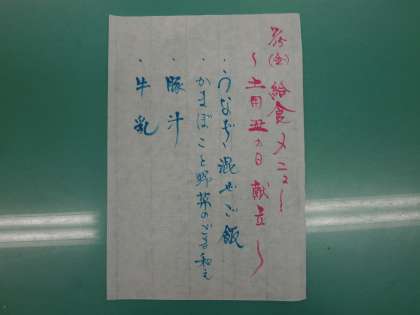 (金) 給食メニュー
〜土用丑の日献立〜
・うなぎ混ぜご飯
・かまぼこと野菜のごま和え
・豚汁
・牛乳